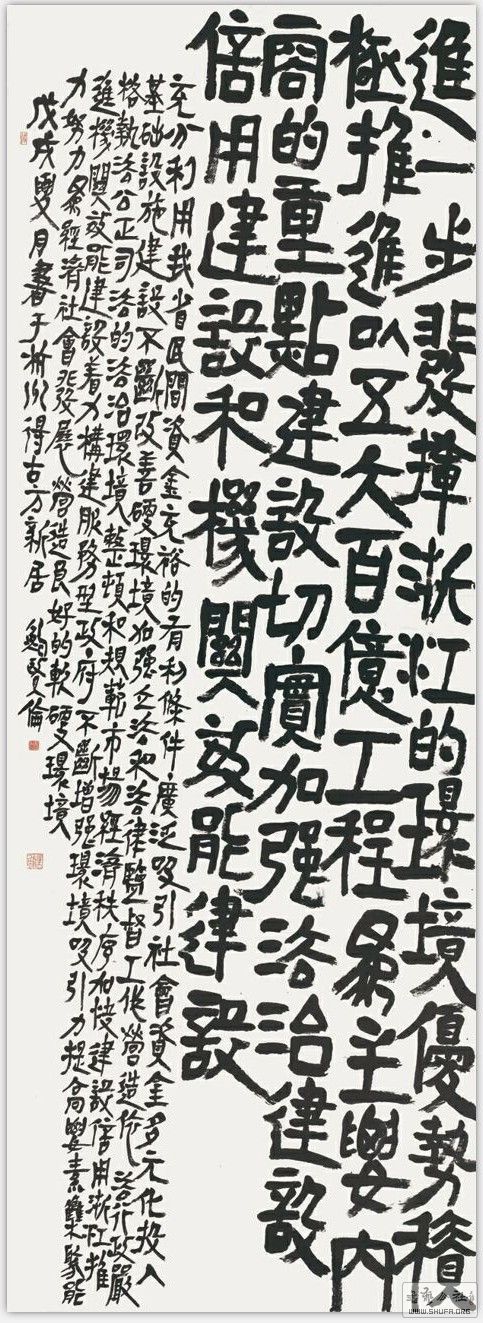 進一步發揮浙江的環境優勢積
極推進以五大百億工程為主要內
容的重點建設切實加强法治建設
信用建設和機關效能建設
充分利用我省民間資金充裕的有利條件廣泛吸引社會資金多元化投入
基础設施建設不斷改善硬環境加强立法和法律監督工作營造依法行政嚴
格執法公正司法的法治環境整頓和規範市場經濟秩序加快建設信用浙江推
進機關效能建設着力構建服務型政府不斷增强環境吸引力提高要素集聚能
力努力為經濟社會發展營造良好的軟硬環境
戊戌夏月書于杭州得古方新居 鮑賢倫
WWW.SHUFA.ORG